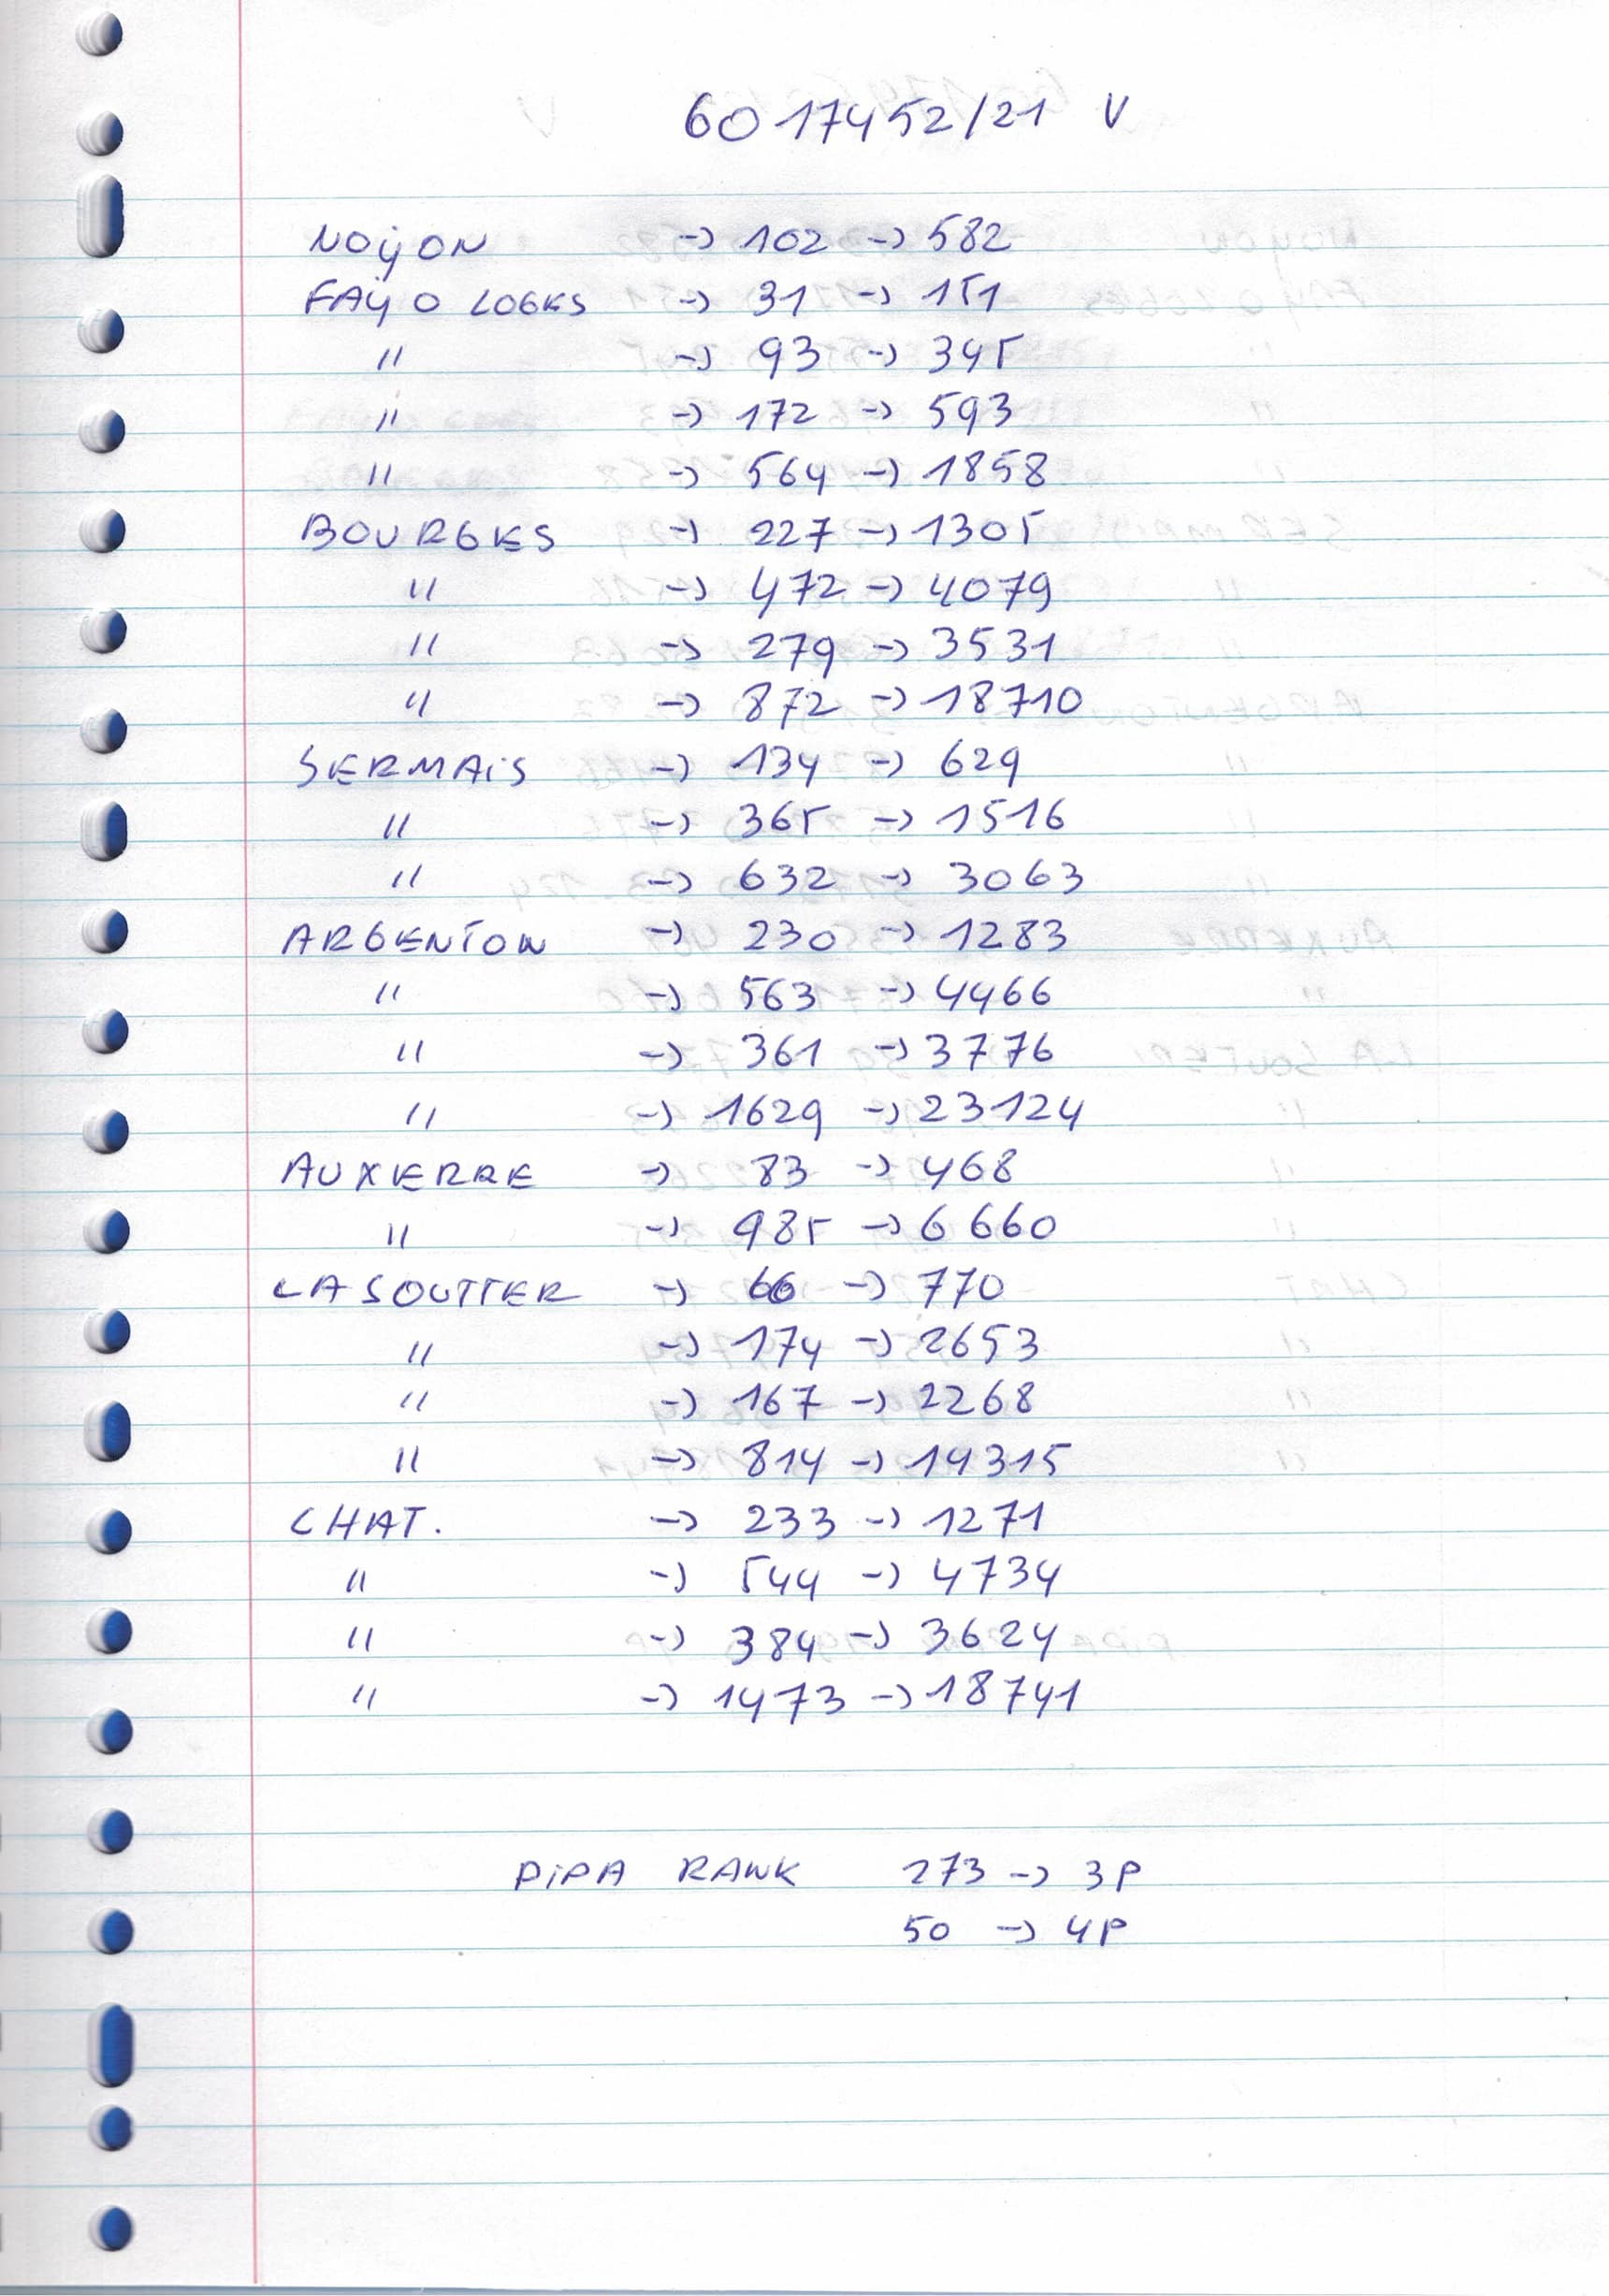 6017452/21 V
NOYON -> 102 -> 582
FAY O LOGES -> 31 -> 151
" -> 93 -> 345
" -> 172 -> 593
" -> 564 -> 1858
BOURGES -> 227 -> 1305
" -> 472 -> 4079
" -> 279 -> 3531
" -> 872 -> 18710
SERMAIS -> 134 -> 629
" -> 365 -> 1516
" -> 632 -> 3063
ARGENTON -> 230 -> 1283
" -> 563 -> 4466
" -> 361 -> 3776
" -> 1629 -> 23124
AUXERRE -> 83 -> 468
" -> 985 -> 6660
LA SOUTTER -> 66 -> 770
" -> 174 -> 2653
" -> 167 -> 2268
" -> 814 -> 14315
CHAT. -> 233 -> 1271
" -> 544 -> 4734
" -> 384 -> 3624
" -> 1473 -> 18741
PIPA RANK 273 -> 3P
50 -> 4P